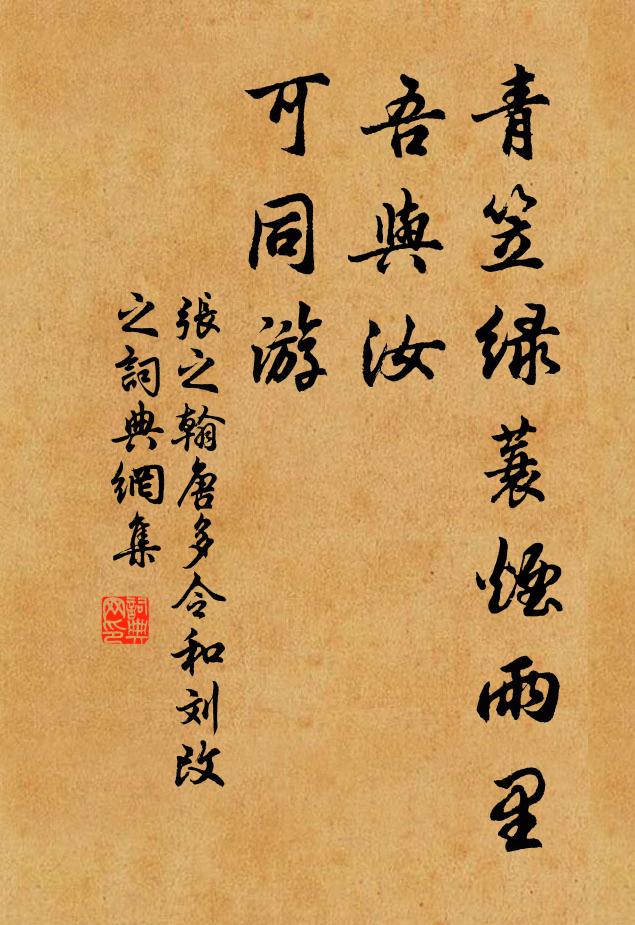 青笠绿蓑煙雨里
吾與汝
可同游
張之翰唐多令和刘改
之詞典網集
詞典网印